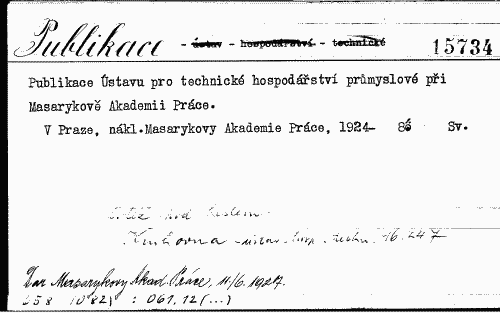 Publikace - ústav - hospodářství - technické 15734
Publikace Ústavu pro technické hospodářství průmyslové při
Masarykově Akademii Práce.
V Praze, nákl.Masarykovy Akademie Práce, 1924- 8° Sv.
též pod heslem
Knihovna - ústav. hosp. techn. 16.247
Dar Masarykovy Akad. Práce, 11/6.1927.
658 (082) : 061.12(...)